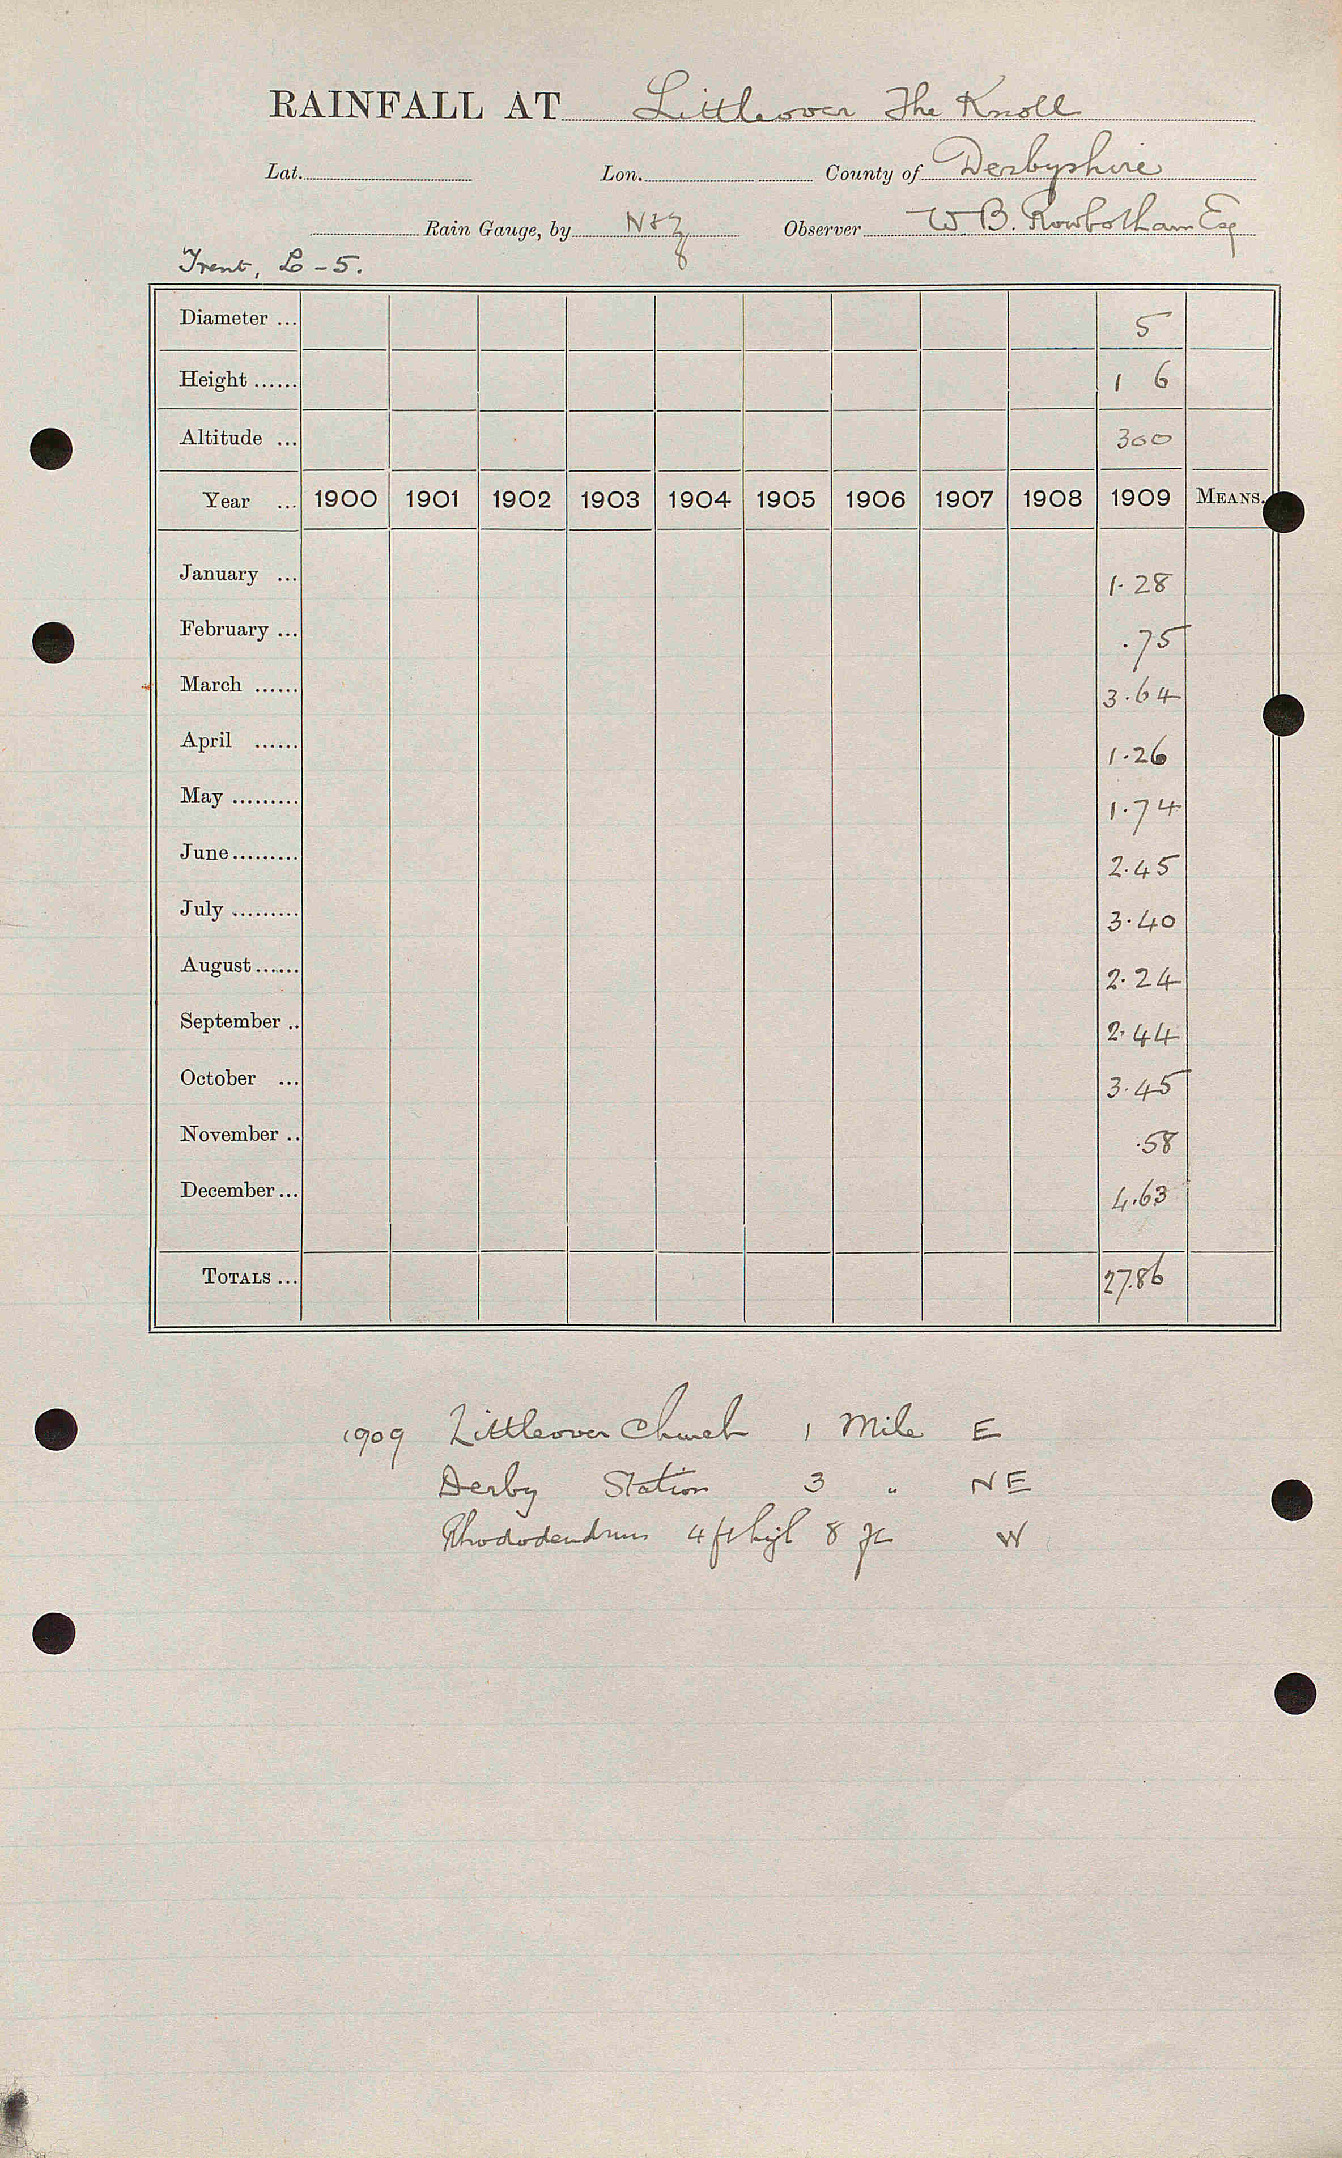 RAINFALL AT Littleover The Knoll
Lat. Lon. County of Derbyshire
Rain Gauge, by N & Z Observer W B. Rowbotham Esq
Trent, L - 5.
Diameter ... 5
Height ...... 1 6
Altitude ... 300
Year ... 1900 1901 1902 1903 1904 1905 1906 1907 1908 1909 MEANS.
January ... 1.28
February ... .75
March ...... 3.64
April ...... 1.26
May ......... 1.74
June......... 2.45
July ......... 3.40
August...... 2.24
September .. 2.44
October ... 3.45
November .. .58
December... 4.63
TOTALS ... 27.86
1909 Littleover Church 1 Mile E
Derby Station 3 " NE
Rhododendrum 4 ft high 8 ft W